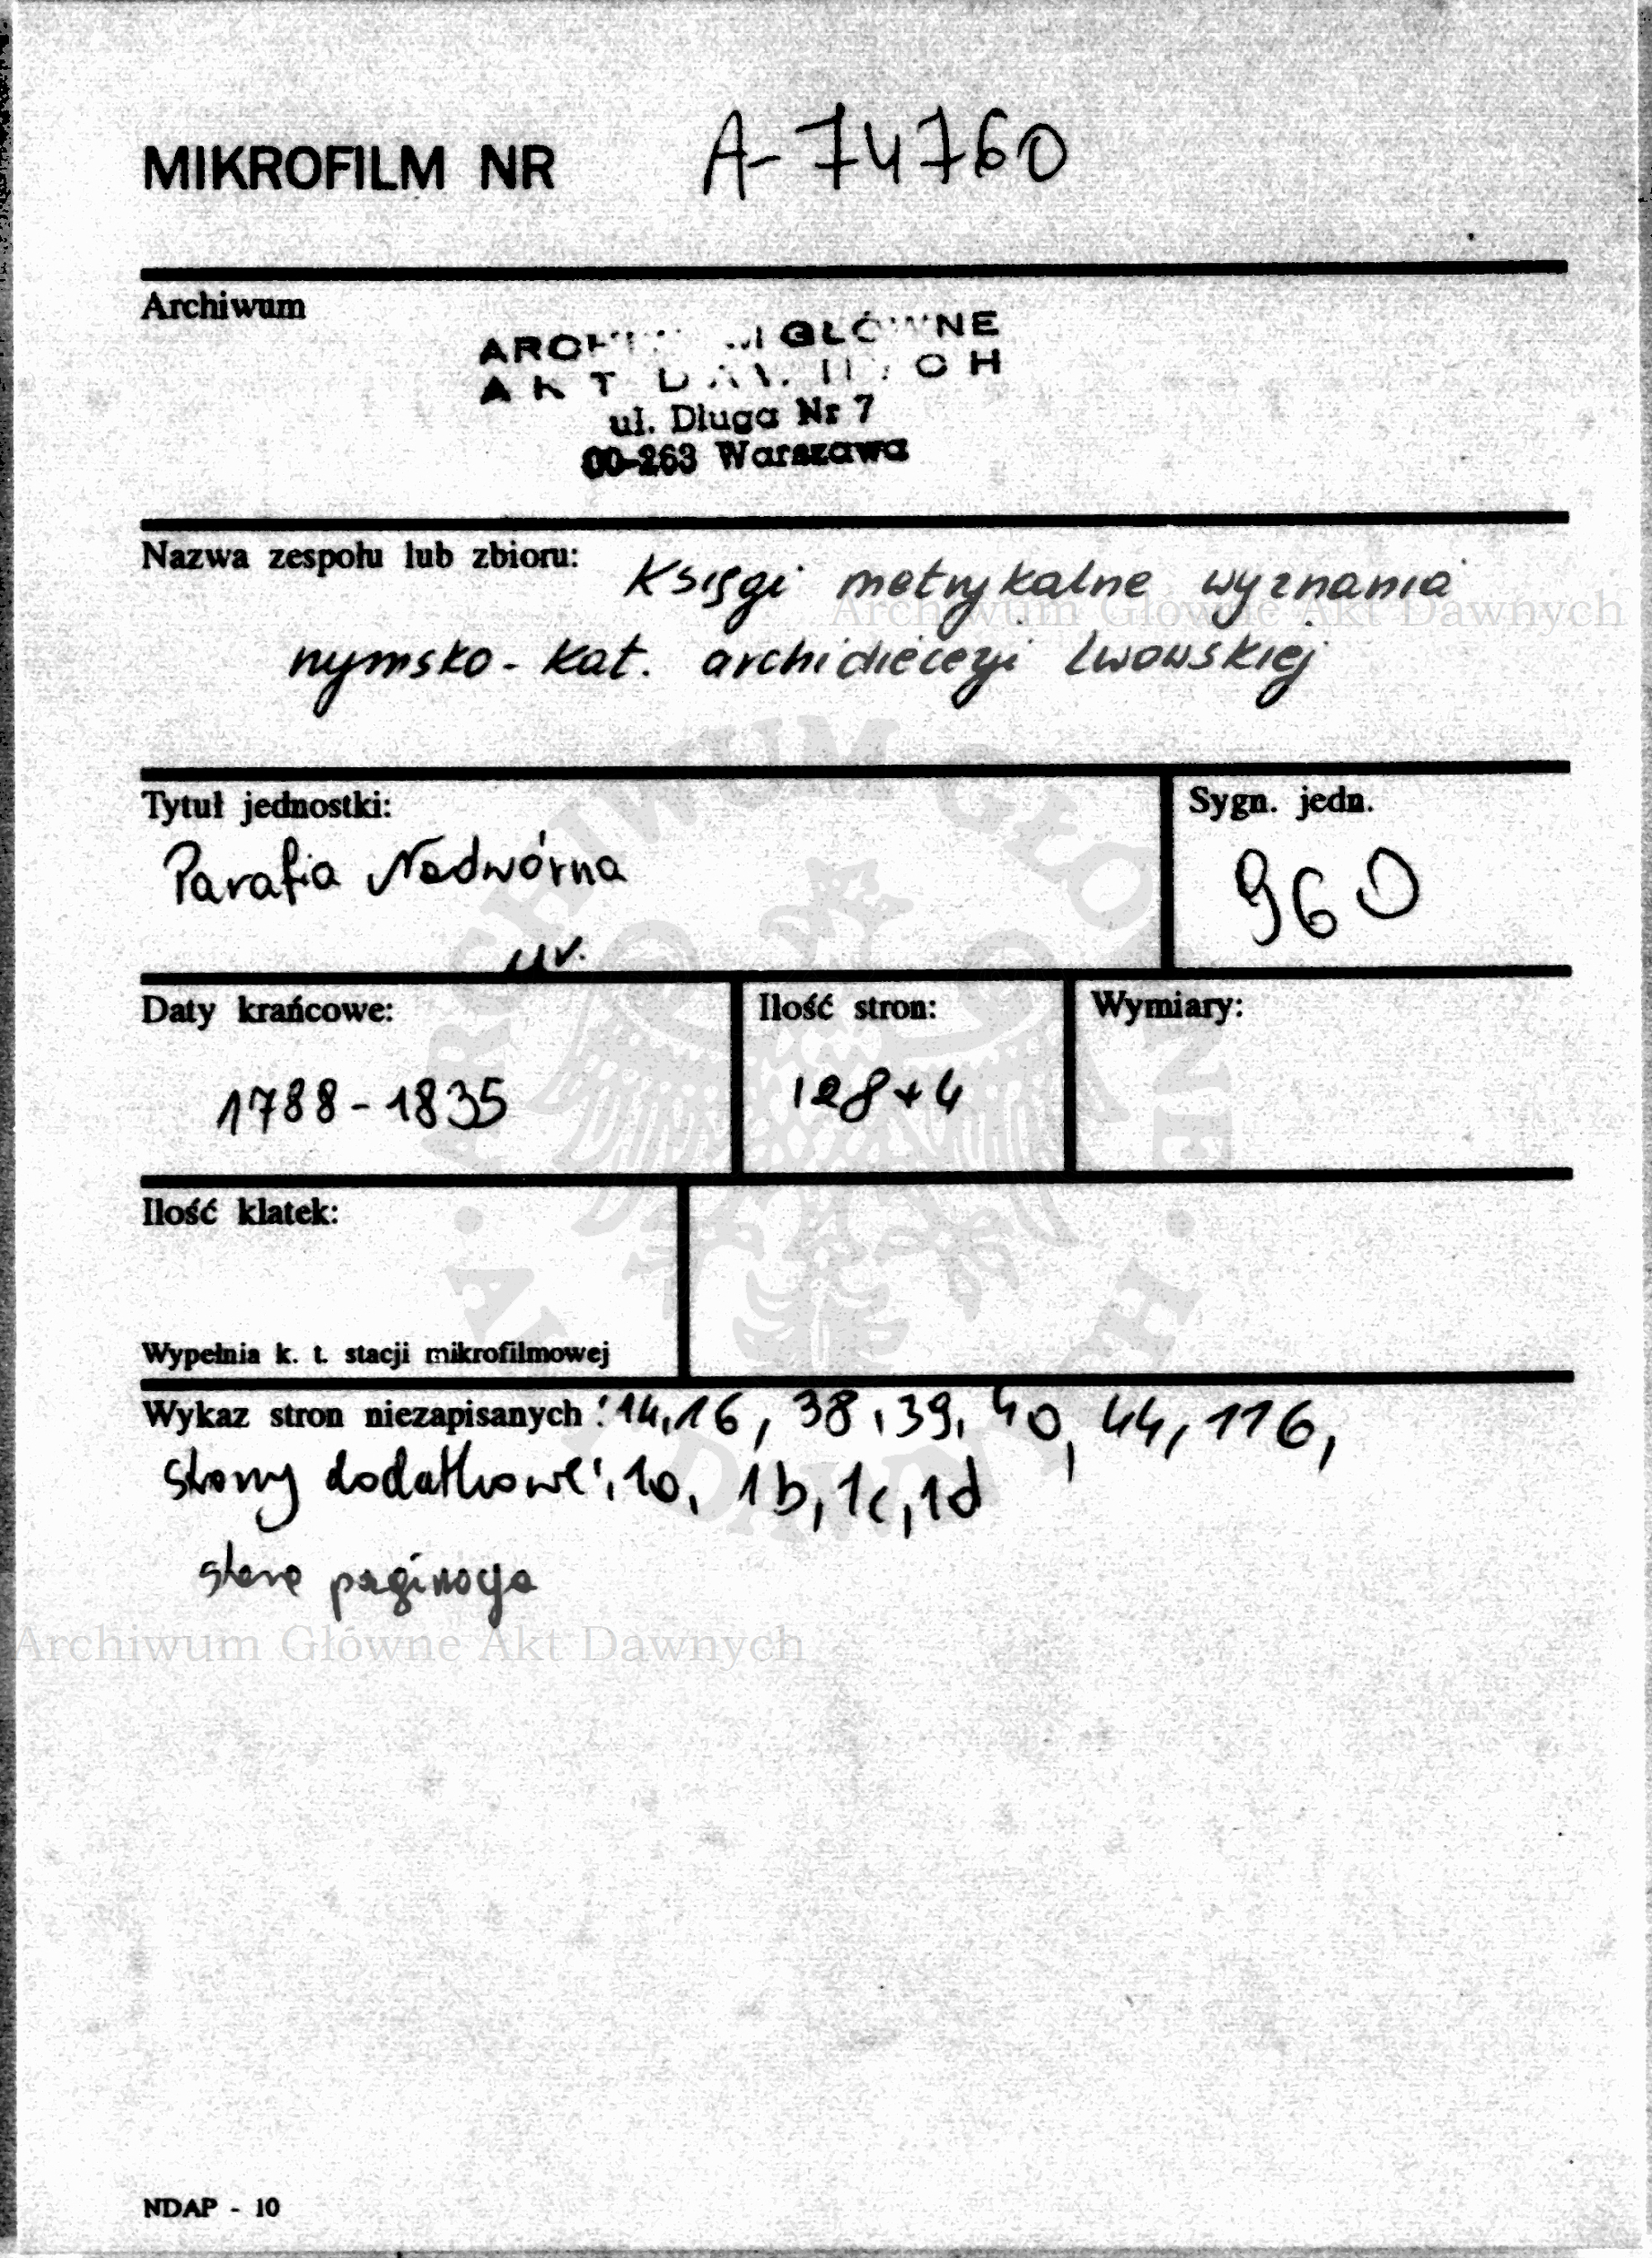 MIKROFILM NR A-74760
Archiwum
ARCHIWUM GŁÓWNE
AKT DAWNYCH
ul. Długa Nr 7
00-263 Warszawa
Nazwa zespołu lub zbioru: Księgi metrykalne wyznania
Archiwum Główne Akt Dawnych
rzymsko-kat. archidiecezji Lwowskiej
Tytuł jednostki:
Parafia Nadwórna
ur.
Sygn. jedn.
960
Daty krańcowe:
1788-1835
Ilość stron:
128+4
Wymiary:
Ilość klatek:
Wypełnia k. t. stacji mikrofilmowej
Wykaz stron niezapisanych: 14,16, 38,39, 40, 44, 116,
strony dodatkowe: 1a, 1b, 1c, 1d
stara paginacja
Archiwum Główne Akt Dawnych
ARCHIWUM GŁÓWNE
AKT DAWNYCH
NDAP - 10